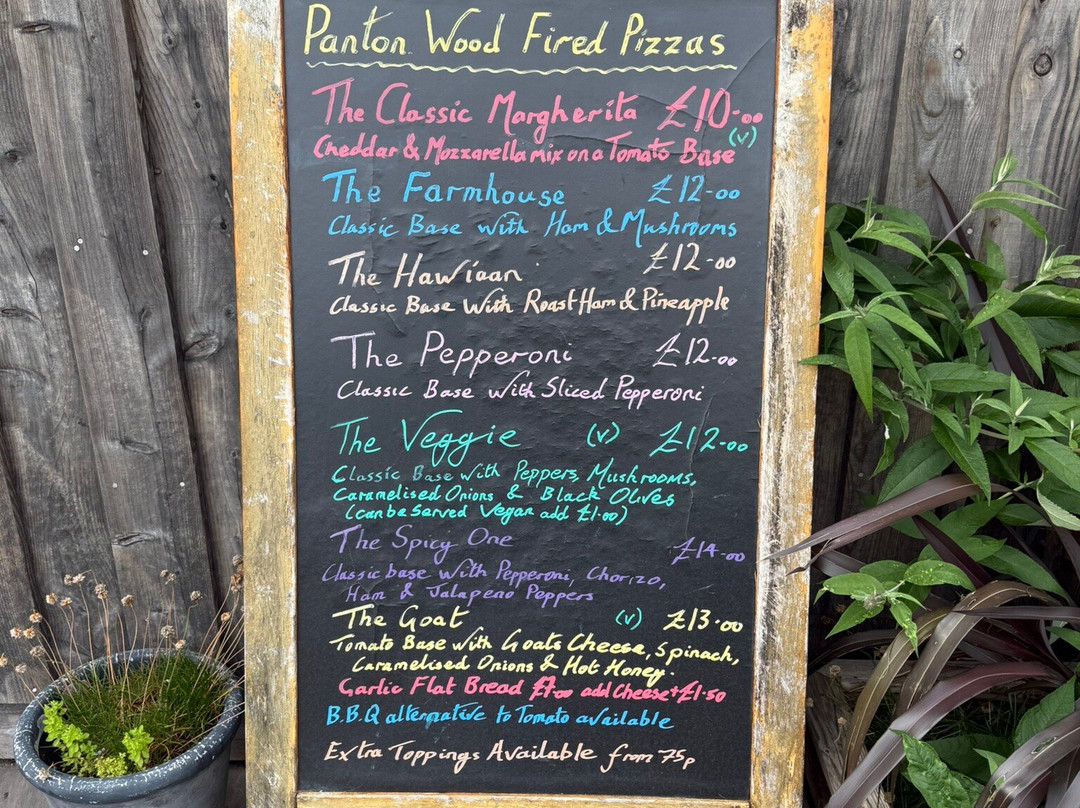 Panton Wood Fired Pizzas
The Classic Margherita £10-00
Cheddar & Mozzarella mix on a Tomato Base (v)
The Farmhouse £12-00
Classic Base with Ham & Mushrooms
The Hawiaan £12-00
Classic Base With Roast Ham & Pineapple
The Pepperoni £12-00
Classic Base with Sliced Pepperoni
The Veggie (v) £12-00
Classic Base with Peppers, Mushrooms,
Caramelised Onions & Black Olives
(can be served Vegan add £1-00)
The Spicy One £14-00
Classic base with Pepperoni, Chorizo,
Ham & Jalapeno Peppers
The Goat (v) £13-00
Tomato Base with Goats Cheese, Spinach,
Caramelised Onions & Hot Honey.
Garlic Flat Bread £7-00 add Cheese + £1-50
B.B.Q alternative to Tomato available
Extra Toppings Available from 75p